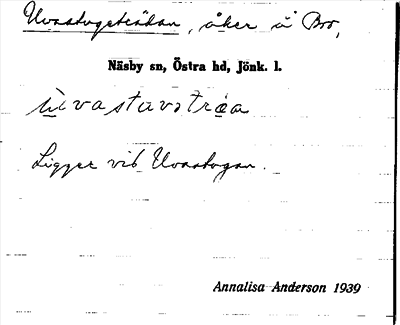 Uvastugeträdan, åker å Bro,
Näsby sn, Östra hd, Jönk. l.
ùvastuvɘtrǽa
Ligger vid Uvastugan.
Annalisa Anderson 1939